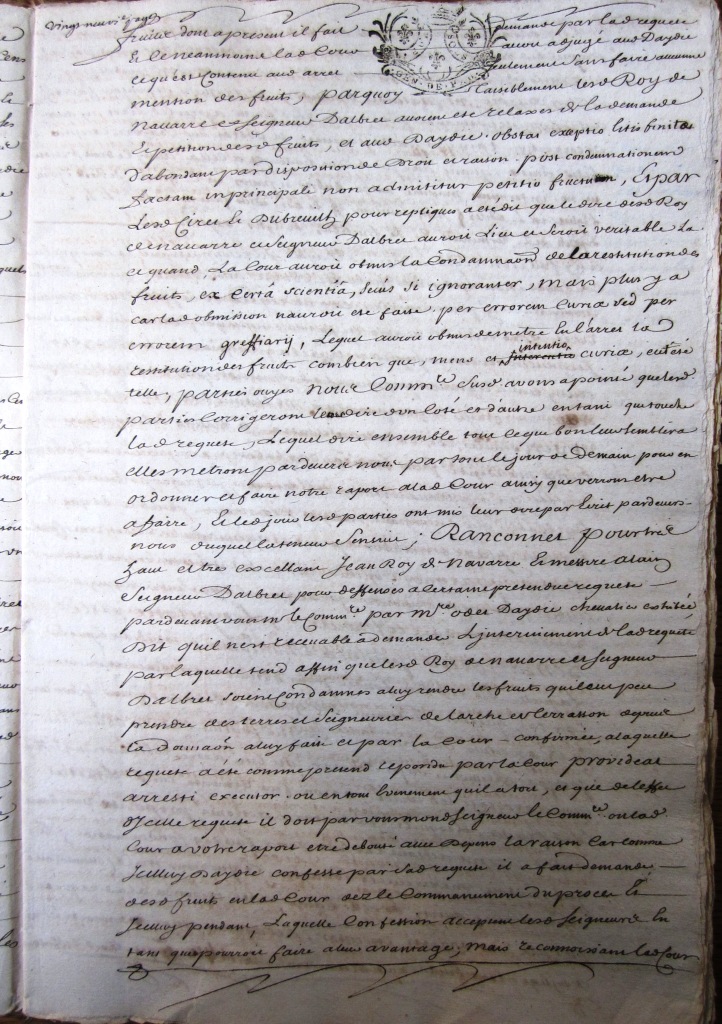 vingt neuvie page
fruits dont apresent il fait demande par lad requete
et le neanmoins lad Cour auroit adjugé aud Daydie
ce qu'est contenu aud arret seulement sans faire aucune
mention des fruits, parquoy taisiblement lesd Roy de
Navarre et Seigneur Dalbret auroient eté relaxes de la demande
et petition desd fruits, et aud Daydie obstat exceptio litis finitæ
d'abondant par disposition de Droit et raison post condemnationem
factam in principali non admititur petitio fructum, Et par
Lesd Cires le Dubreuilh pour repliques a eté dit que le dire desd Roy
de navarre et Seigneur Dalbret auroit Lieu et seroit veritable la
et quand La Cour auroit obmis la Condamnaon de la restitution des
fruits, ex Certâ scientiâ, secus si ignoranter, mais plus y a
car lad obmission n'auroit eté faite per errorem Curiæ sed per
errorem greffiarij, Lequel auroit obmis de metre en l'arret la
restitution des fruits combien que, mens et intentio curiæ, eut eté
telle, parties ouyes Nous Comm.re susd avons apointé que lesd
parties Corrigeront leur dire d'un Coté et d'autre en tant que touche
lad requete, Lequel dire ensemble tout ce que bon leur semblera
elles metront pardevers nous par tout le jour de demain pour en
ordonner et faire notre raport a lad Cour ainsy que verrons etre
a faire, Et led jour lesd parties ont mis leur dire par Ecrit pardevers
nous duquel la teneur s'ensuit; Ranconnet pour tres
haut et tres excellant Jean Roy de Navarre et messire Alain
Seigneur Dalbret pour deffenses a certaine pretendue requete
pardevant vous mr le Comm.re par M.re odet Daydie chevalier exhibée,
Dit qu'il n'est recevable a demander L'interinement de lad requete
par laquelle tend affin que lesd Roy de navarre et Seigneur
Dalbret soient Condamnes a luy rendre les fruits qu'il eut peu
prendre des terres et Seigneuries de larche et terrasson depuis
la donnaon a luy faite et par la Cour confirmée, a laquelle
requete a eté comme pretend repondu par la Cour provideat
arresti executor. ou en tout Evenement qu'il a tort, et que de l'effet
d'Icelle requete il doit par vous mond Seigneur le Comm.re ou lad
Cour a votre raport etre debouté avec Depens la raison Car comme
Icelluy Daydie confesse par sad requete il a fait demande
desd fruits en lad Cour dez le Commancement du procez Et
Icelluy pendant, Laquelle Confession acceptent lesd Seigneurs En
tant que pourroit faire a leur avantage; mais reconnoissant lad Cour